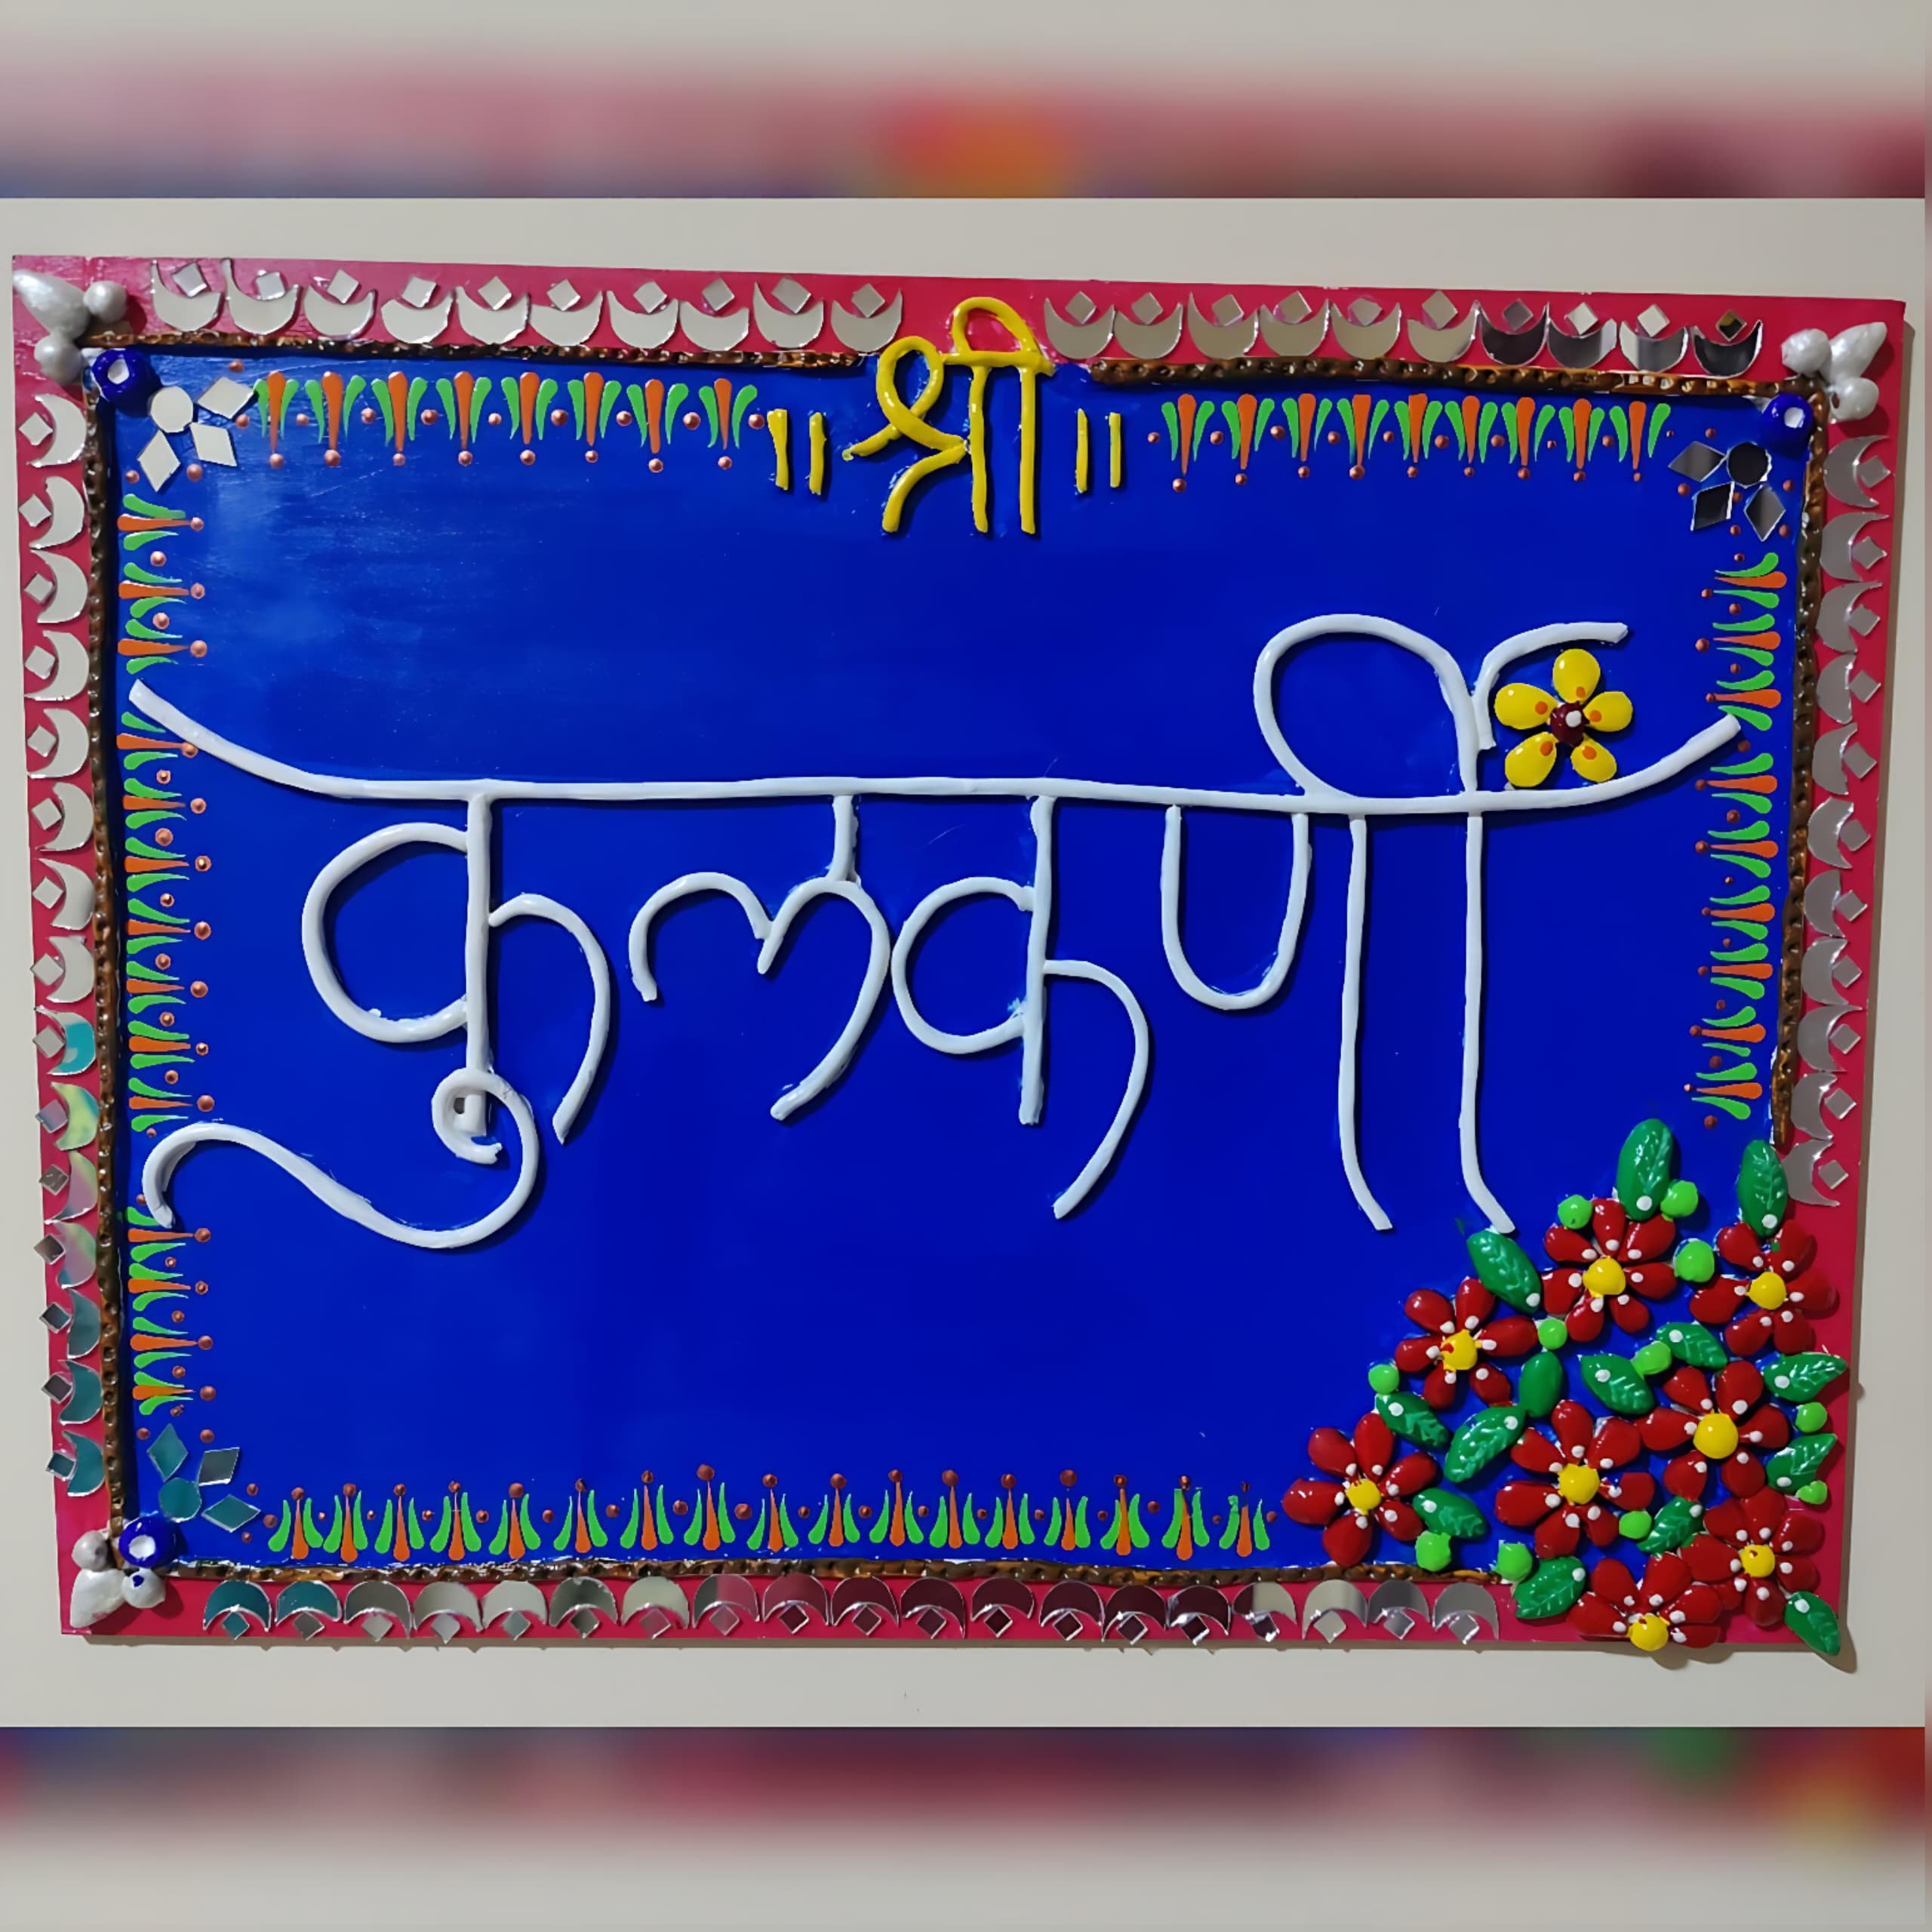 ॥ श्री ॥
कुलकर्णी